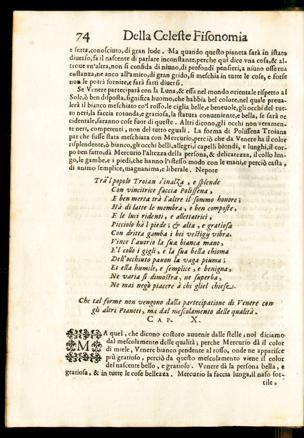 74 Della Celeste Fisonomia
e sarà, conosciuto, di gran lode. Ma quando questo pianeta sarà in istato
diuerso, fa il nascente di parlare inconstante, perche quì dice vna cosa, & al-
troue vn'altra, non si confida di niuno, di profondi pensieri, a niuno osserua
costanza, ne anco all'amico, di gran grido, si meschia in tutte le cose, e forse
non le potrà fornire, e sarà diuersi.
Se Venere parteciparà con la Luna, & essa nel mondo orientale rispetto al
Sole, ò ben disposta, significa huomo, che habbia bel colore, nel quale preua-
lerà il bianco meschiato co'l rosso, le ciglia belle, e beneuole, gli occhi del tut-
to neri, la faccia rotonda, e gratiosa, la statura conueniente, e bella, se sarà oc-
cidentale, saranno cose fuor di queste. Altri dicono, gli occhi non veramen-
te neri, competenti, non del tutto eguali. La forma di Polissena Troiana
par che fusse fatta meschiata con Mercurio, perciò che da Venere ha il color
risplendente, ò bianco, gli occhi belli, allegri, i capelli biondi, e lunghi, il cor-
po ben fatto, da Mercurio l'altezza della persona, & delicatezza, il collo lun-
go, le gambe, e i piedi, che hanno l'istesso modo con le mani, e perciò casta,
di animo semplice, magnanima, e liberale. Nepote
Trà'l popolo Troian s'inalza, e splende
Con vincitrice faccia Polissena,
E ben merta trà l'altre il sommo honore;
Hà di latte le membra, e ben composte;
E le luci ridenti, e allettatrici,
Picciole hà l piede; & alta, e gratiosa
Con dritta gamba i bei vestigij vibra.
Vince l'auorio la sua bianca mano,
E'l collo i gigli, e la sua bella chioma
Dell'occhiuto pauon la vaga piuma;
Et ella humile, e semplice, e benigna,
Ne varia si dimostra, ne superba,
Ne mai negò piacere à chi gliel chiese.
Che tal forme non vengono dalla partecipatione di Venere con
gli altri Pianeti, ma dal mescolamento delle qualità.
Cap. X.
MA quel, che dicono costoro auuenir dalle stelle, noi diciamo
dal mescolamento delle qualità, perche Mercurio dà il color
di miele, Venere bianco pendente al rosso, onde ne apparisce
più gratioso, perciò da questo mescolamento viene il color
del nascente bello, e gratioso. Venere dà la persona bella, e
gratiosa, & in tutte le cose bellezza. Mercurio la faccia lunga, il naso sot-
tile,